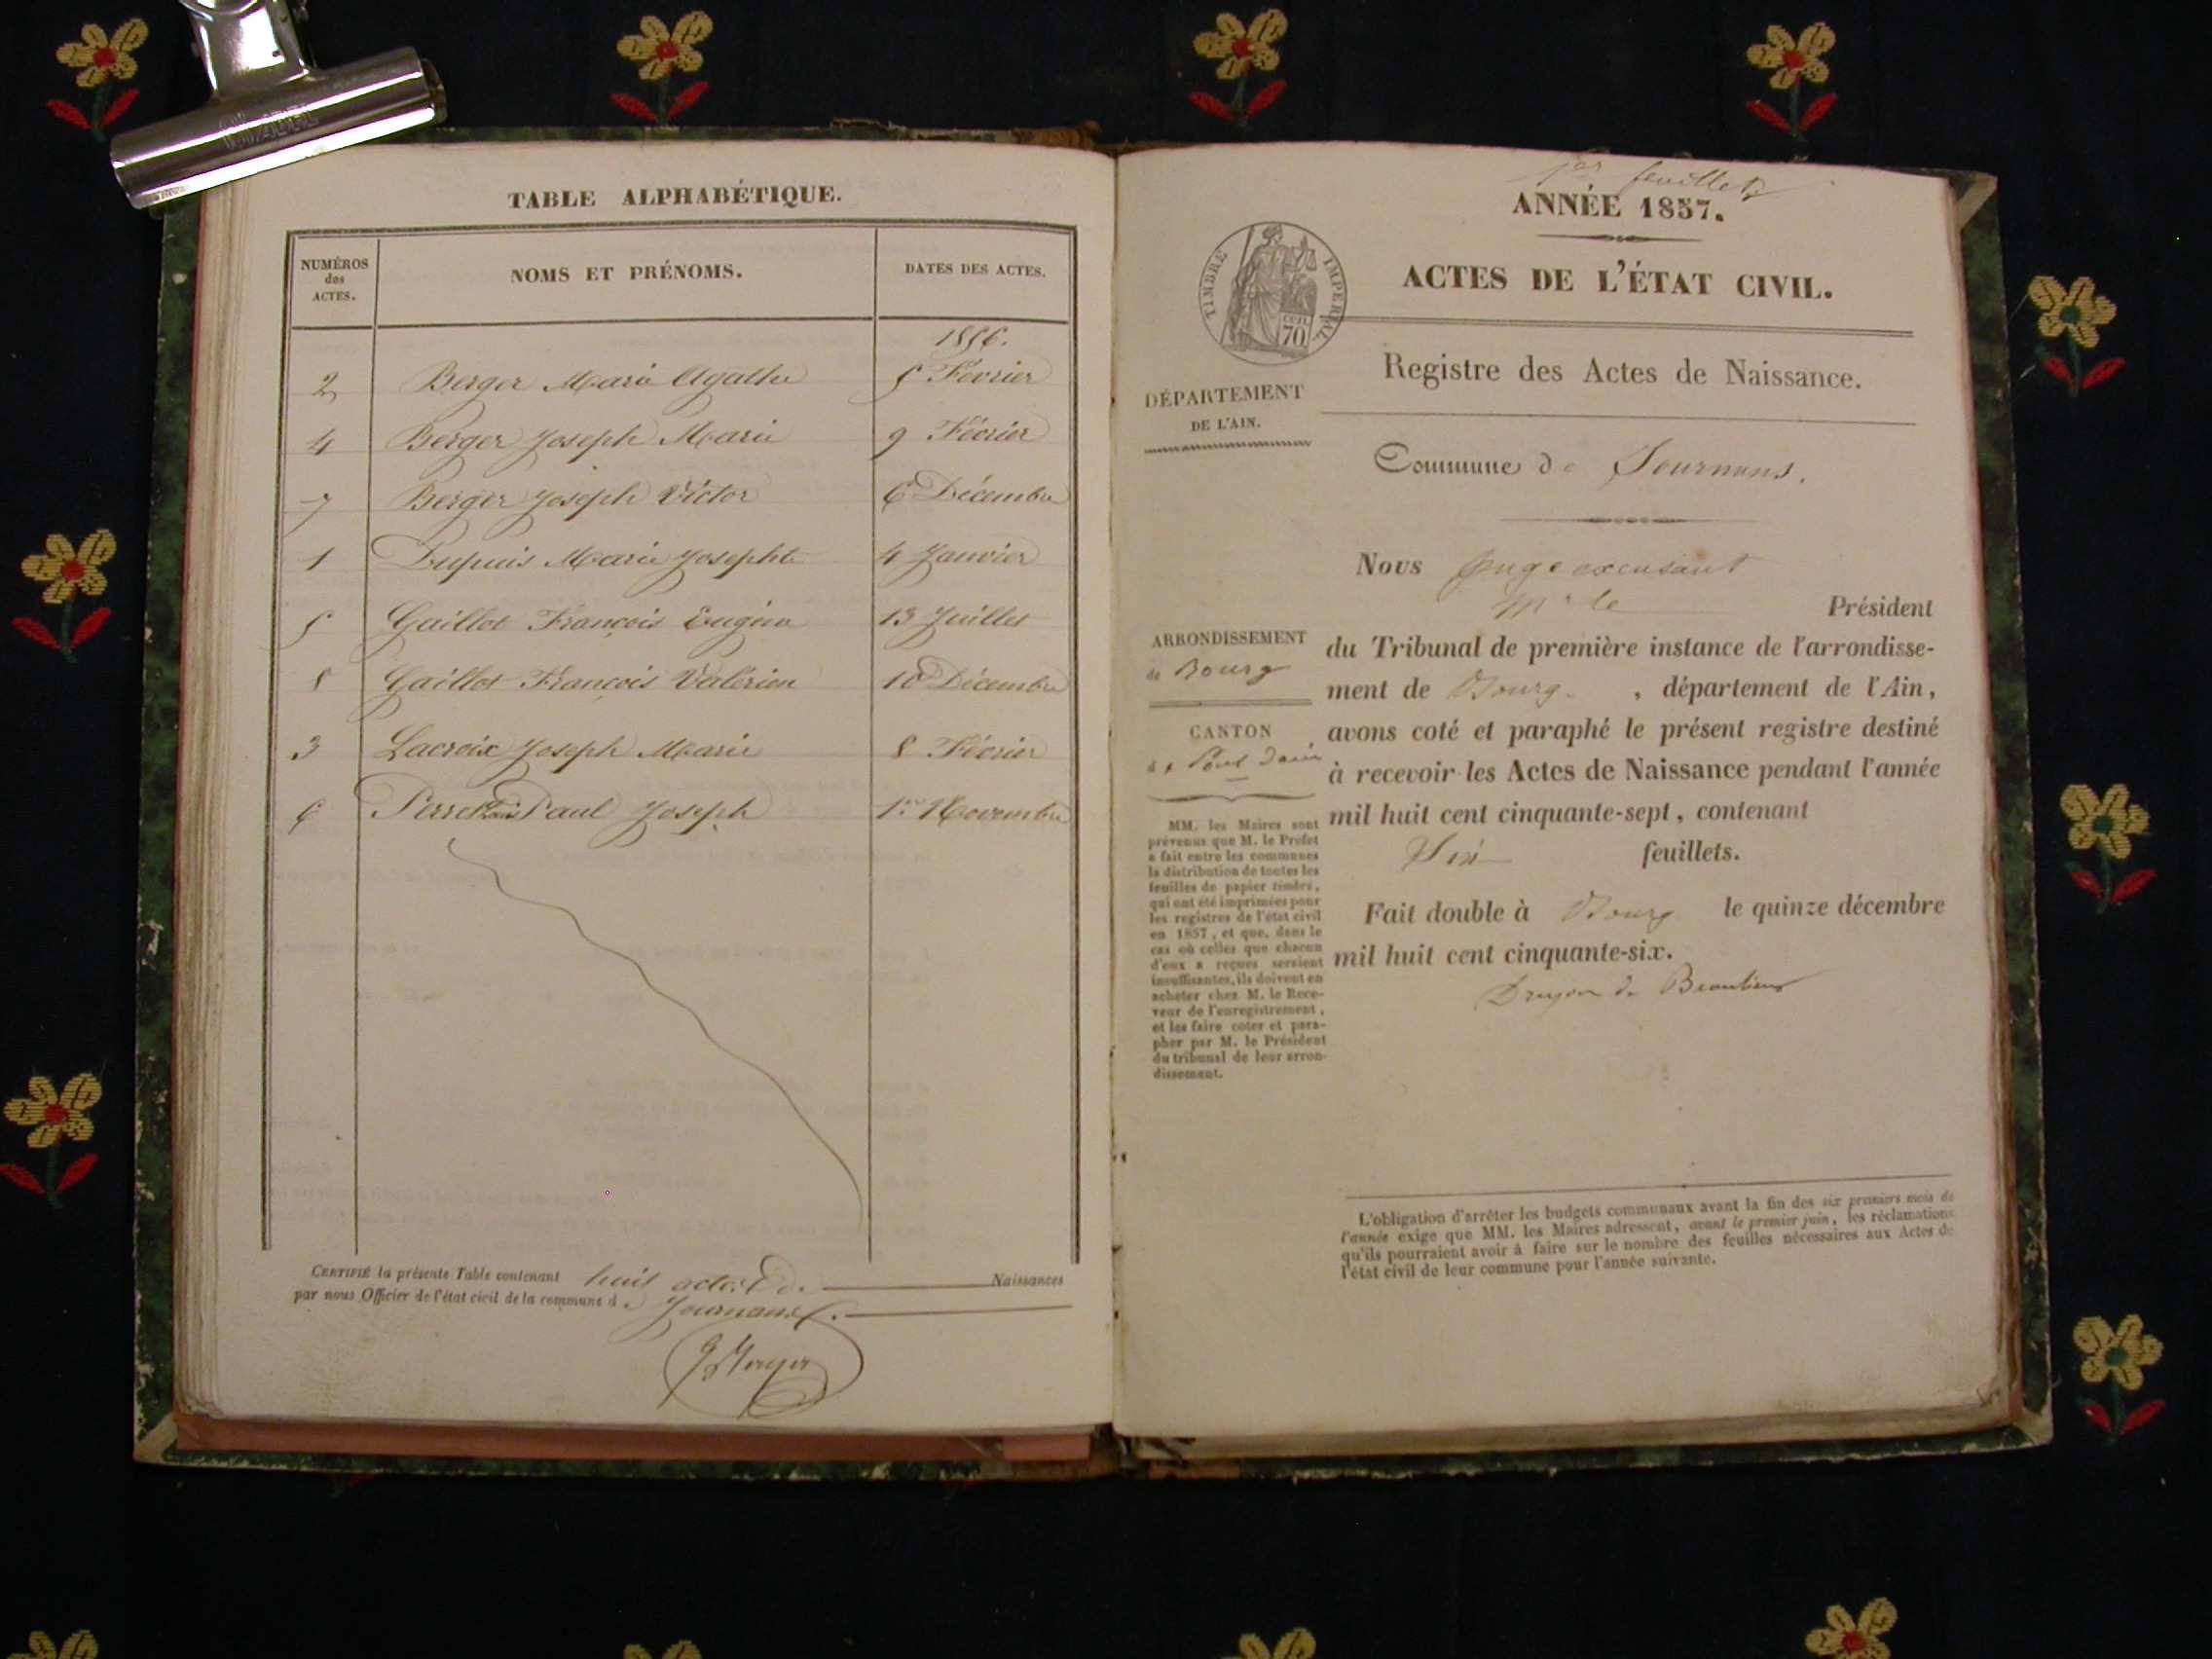 TABLE ALPHABÉTIQUE.
NUMÉROS des ACTES.
NOMS ET PRÉNOMS.
DATES DES ACTES.
1856.
2 Berger Marie Agathe 5 Février
4 Berger Joseph Marie 9 Février
7 Berger Joseph Victor 6 Décembre
1 Dupuis Marie Josephte 4 Janvier
5 Gaillot François Eugène 13 Juillet
8 Gaillot François Valérien 10 Décembre
3 Lacroix Joseph Marie 8 Février
6 Perret Louis Paul Joseph 1er Novembre
CERTIFIÉ la présente Table contenant huit actes de Naissances
par nous Officier de l'état civil de la commune de Journans.
1er feuillet
ANNÉE 1857.
ACTES DE L'ÉTAT CIVIL.
TIMBRE IMPÉRIAL
CENT. 70
Registre des Actes de Naissance.
DÉPARTEMENT
DE L'AIN.
Commune de Journans.
Nous Juge excusant
Mr le Président
ARRONDISSEMENT
de Bourg
CANTON
de Pont d'ain
du Tribunal de première instance de l'arrondisse-
ment de Bourg, département de l'Ain,
avons coté et paraphé le présent registre destiné
à recevoir les Actes de Naissance pendant l'année
mil huit cent cinquante-sept, contenant
Six feuillets.
Fait double à Bourg le quinze décembre
mil huit cent cinquante-six.
Druyon de Beaulieu
MM. les Maires sont
prévenus que M. le Préfet
a fait entre les communes
la distribution de toutes les
feuilles de papier timbré,
qui ont été imprimées pour
les registres de l'état civil
en 1857, et que, dans le
cas où celles que chacun
d'eux a reçues seraient
insuffisantes, ils doivent en
acheter chez M. le Rece-
veur de l'enregistrement,
et les faire coter et para-
pher par M. le Président
du tribunal de leur arron-
dissement.
L'obligation d'arrêter les budgets communaux avant la fin des six premiers mois de
l'année exige que MM. les Maires adressent, avant le premier juin, les réclamations
qu'ils pourraient avoir à faire sur le nombre des feuilles nécessaires aux Actes de
l'état civil de leur commune pour l'année suivante.